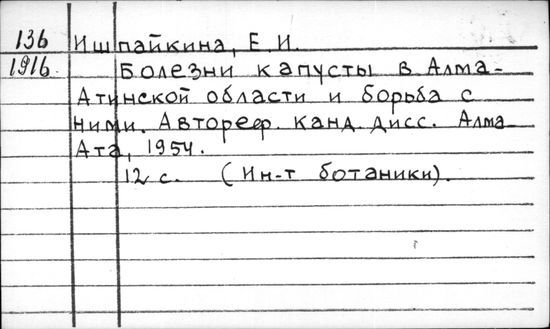 136 Ишпайкина, Е.И.
1916 Болезни капусты в Алма-
Атинской области и борьба с
ними. Автореф. канд. дисс. Алма-
Ата, 1954.
12 с. (Ин-т ботаники).